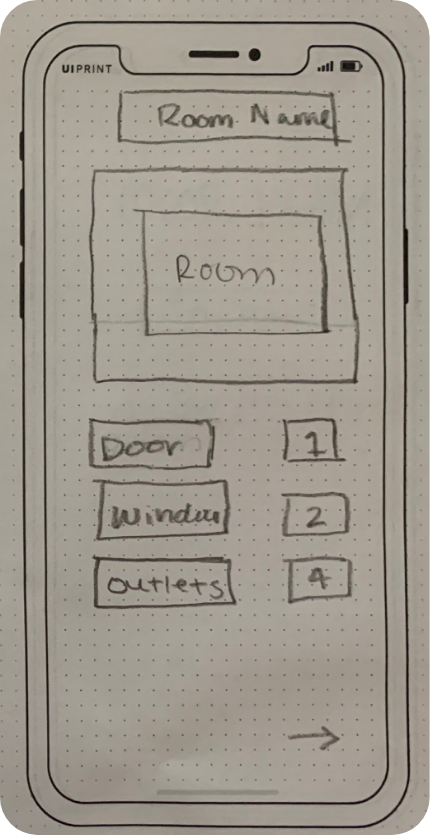 UIPRINT
Room Name
Room
Door 1
Window 2
outlets 4